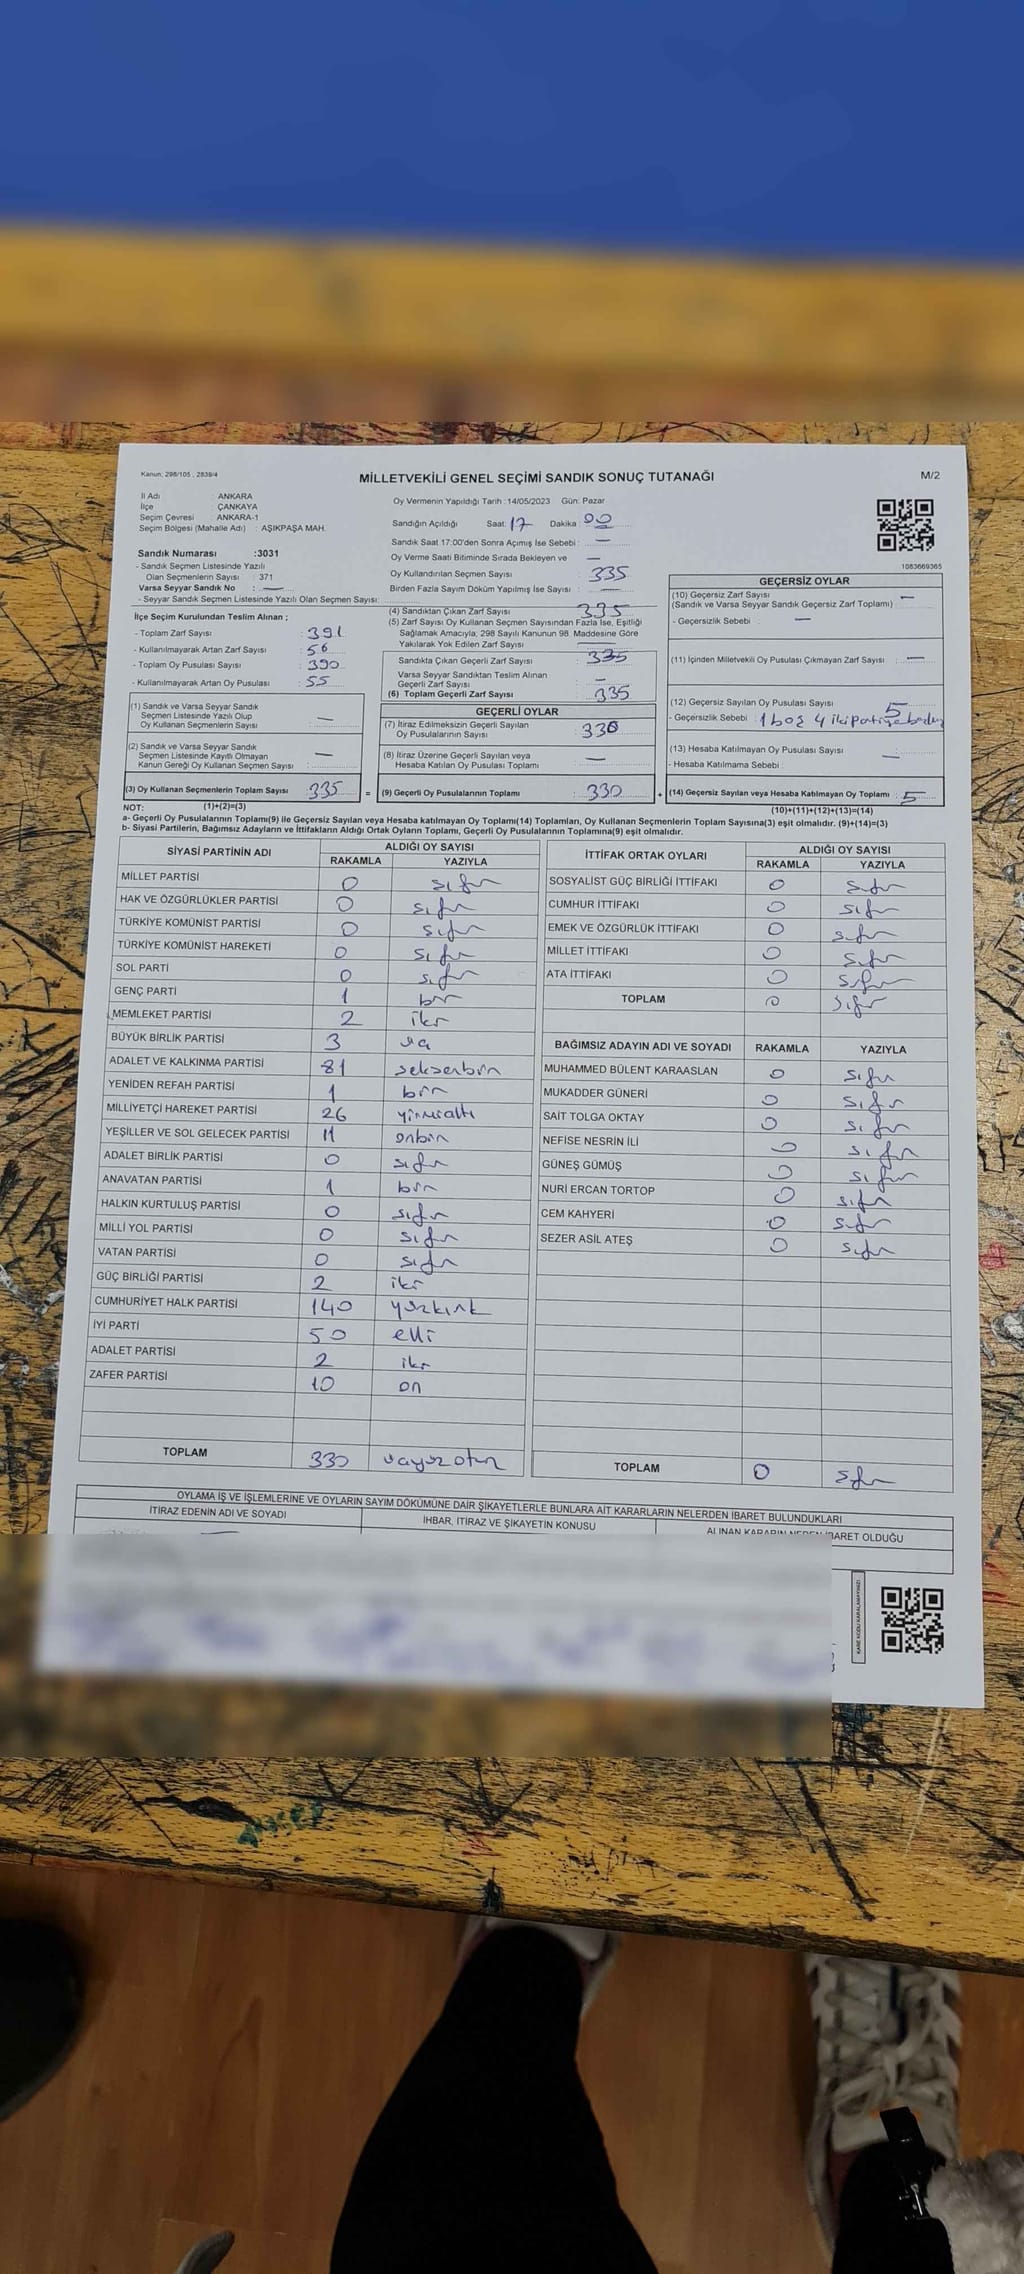 Kanun; 298/105 , 2839/4
MİLLETVEKİLİ GENEL SEÇİMİ SANDIK SONUÇ TUTANAĞI
M/2
İl Adı : ANKARA
İlçe : ÇANKAYA
Seçim Çevresi : ANKARA-1
Seçim Bölgesi (Mahalle Adı) : AŞIKPAŞA MAH.
Sandık Numarası :3031
- Sandık Seçmen Listesinde Yazılı
Olan Seçmenlerin Sayısı : 371
Varsa Seyyar Sandık No : —
- Seyyar Sandık Seçmen Listesinde Yazılı Olan Seçmen Sayısı:
Oy Vermenin Yapıldığı Tarih : 14/05/2023 Gün: Pazar
Sandığın Açıldığı Saat: 17 Dakika : 00
Sandık Saat 17:00'den Sonra Açımış İse Sebebi : —
Oy Verme Saati Bitiminde Sırada Bekleyen ve —
Oy Kullandırılan Seçmen Sayısı : 335
Birden Fazla Sayım Döküm Yapılmış İse Sayısı : —
1083669365
İlçe Seçim Kurulundan Teslim Alınan ;
- Toplam Zarf Sayısı : 391
- Kullanılmayarak Artan Zarf Sayısı : 56
- Toplam Oy Pusulası Sayısı : 390
- Kullanılmayarak Artan Oy Pusulası : 55
(1) Sandık ve Varsa Seyyar Sandık
Seçmen Listesinde Yazılı Olup
Oy Kullanan Seçmenlerin Sayısı : —
(2) Sandık ve Varsa Seyyar Sandık
Seçmen Listesinde Kayıtlı Olmayan
Kanun Gereği Oy Kullanan Seçmen Sayısı : —
(3) Oy Kullanan Seçmenlerin Toplam Sayısı : 335 =
(4) Sandıktan Çıkan Zarf Sayısı : 335
(5) Zarf Sayısı Oy Kullanan Seçmen Sayısından Fazla İse, Eşitliği
Sağlamak Amacıyla; 298 Sayılı Kanunun 98. Maddesine Göre
Yakılarak Yok Edilen Zarf Sayısı : —
Sandıkta Çıkan Geçerli Zarf Sayısı : 335
Varsa Seyyar Sandıktan Teslim Alınan
Geçerli Zarf Sayısı : —
(6) Toplam Geçerli Zarf Sayısı : 335
GEÇERLİ OYLAR
(7) İtiraz Edilmeksizin Geçerli Sayılan
Oy Pusulalarının Sayısı : 330
(8) İtiraz Üzerine Geçerli Sayılan veya
Hesaba Katılan Oy Pusulası Toplamı : —
(9) Geçerli Oy Pusulalarının Toplamı : 330 +
GEÇERSİZ OYLAR
(10) Geçersiz Zarf Sayısı : —
(Sandık ve Varsa Seyyar Sandık Geçersiz Zarf Toplamı)
- Geçersizlik Sebebi : —
(11) İçinden Milletvekili Oy Pusulası Çıkmayan Zarf Sayısı : —
(12) Geçersiz Sayılan Oy Pusulası Sayısı : 5
- Geçersizlik Sebebi : 1 boş 4 iki
(13) Hesaba Katılmayan Oy Pusulası Sayısı : —
- Hesaba Katılmama Sebebi :
(14) Geçersiz Sayılan veya Hesaba Katılmayan Oy Toplamı : 5
NOT: (1)+(2)=(3)
(10)+(11)+(12)+(13)=(14)
a- Geçerli Oy Pusulalarının Toplamı(9) ile Geçersiz Sayılan veya Hesaba katılmayan Oy Toplamı(14) Toplamları, Oy Kullanan Seçmenlerin Toplam Sayısına(3) eşit olmalıdır. (9)+(14)=(3)
b- Siyasi Partilerin, Bağımsız Adayların ve İttifakların Aldığı Ortak Oyların Toplamı, Geçerli Oy Pusulalarının Toplamına(9) eşit olmalıdır.
SİYASİ PARTİNİN ADI ALDIĞI OY SAYISI
RAKAMLA YAZIYLA
MİLLET PARTİSİ 0 sıfır
HAK VE ÖZGÜRLÜKLER PARTİSİ 0 sıfır
TÜRKİYE KOMÜNİST PARTİSİ 0 sıfır
TÜRKİYE KOMÜNİST HAREKETİ 0 sıfır
SOL PARTİ 0 sıfır
GENÇ PARTİ 1 bir
MEMLEKET PARTİSİ 2 iki
BÜYÜK BİRLİK PARTİSİ 3 üç
ADALET VE KALKINMA PARTİSİ 81 seksenbir
YENİDEN REFAH PARTİSİ 1 bir
MİLLİYETÇİ HAREKET PARTİSİ 26 yirmialtı
YEŞİLLER VE SOL GELECEK PARTİSİ 11 onbir
ADALET BİRLİK PARTİSİ 0 sıfır
ANAVATAN PARTİSİ 1 bir
HALKIN KURTULUŞ PARTİSİ 0 sıfır
MİLLİ YOL PARTİSİ 0 sıfır
VATAN PARTİSİ 0 sıfır
GÜÇ BİRLİĞİ PARTİSİ 2 iki
CUMHURİYET HALK PARTİSİ 140 yüzkırk
İYİ PARTİ 50 elli
ADALET PARTİSİ 2 iki
ZAFER PARTİSİ 10 on
TOPLAM 330 üçyüzotuz
İTTİFAK ORTAK OYLARI ALDIĞI OY SAYISI
RAKAMLA YAZIYLA
SOSYALİST GÜÇ BİRLİĞİ İTTİFAKI 0 sıfır
CUMHUR İTTİFAKI 0 sıfır
EMEK VE ÖZGÜRLÜK İTTİFAKI 0 sıfır
MİLLET İTTİFAKI 0 sıfır
ATA İTTİFAKI 0 sıfır
TOPLAM 0 sıfır
BAĞIMSIZ ADAYIN ADI VE SOYADI RAKAMLA YAZIYLA
MUHAMMED BÜLENT KARAASLAN 0 sıfır
MUKADDER GÜNERİ 0 sıfır
SAİT TOLGA OKTAY 0 sıfır
NEFİSE NESRİN İLİ 0 sıfır
GÜNEŞ GÜMÜŞ 0 sıfır
NURİ ERCAN TORTOP 0 sıfır
CEM KAHYERİ 0 sıfır
SEZER ASİL ATEŞ 0 sıfır
TOPLAM 0 sıfır
OYLAMA İŞ VE İŞLEMLERİNE VE OYLARIN SAYIM DÖKÜMÜNE DAİR ŞİKAYETLERLE BUNLARA AİT KARARLARIN NELERDEN İBARET BULUNDUKLARI
İTİRAZ EDENİN ADI VE SOYADI İHBAR, İTİRAZ VE ŞİKAYETİN KONUSU ALINAN KARARIN NEDEN İBARET OLDUĞU
KARE KODU KARALAMAYINIZ!